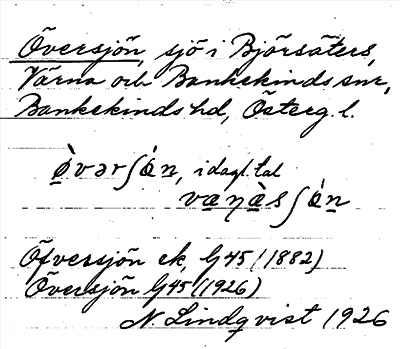 Översjön, sjö i Björsäters,
Värna och Bankekinds snr,
Bankekinds hd, Österg. l.
ø̀vərʃǿn, i dagl. tal
væŋæ̀sʃǿn
Öfversjön ek, G45 (1882)
Översjön G45 (1926)
N. Lindqvist 1926